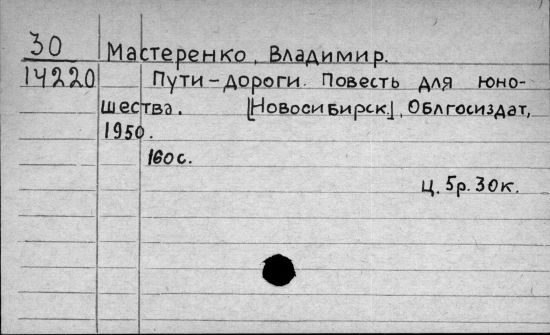 30
Мастеренко, Владимир.
14220
Пути-дороги. Повесть для юно-
шества. [Новосибирск], Облгосиздат,
1950.
160с.
ц. 5р. 30к.